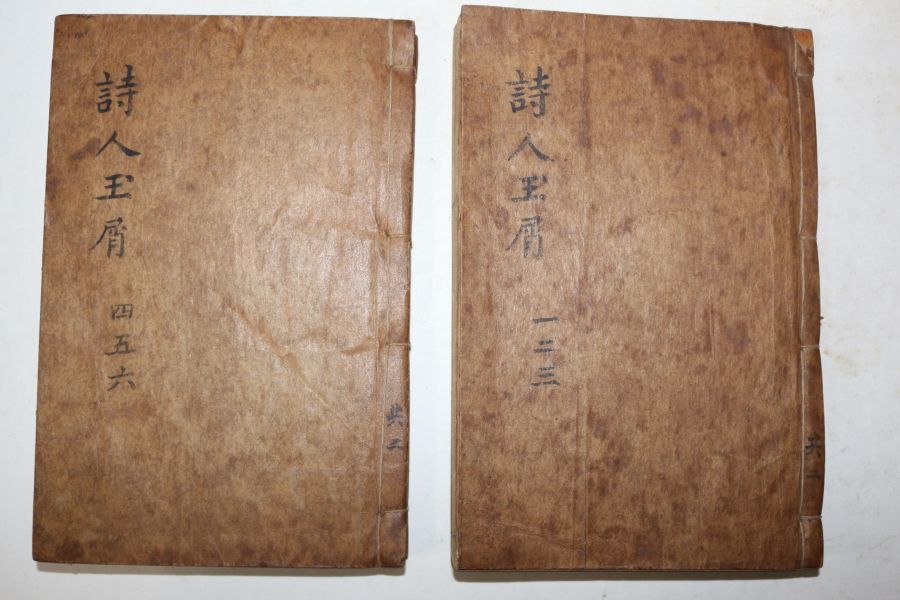 詩人玉屑 一二三
共一
詩人玉屑 四五六
共二